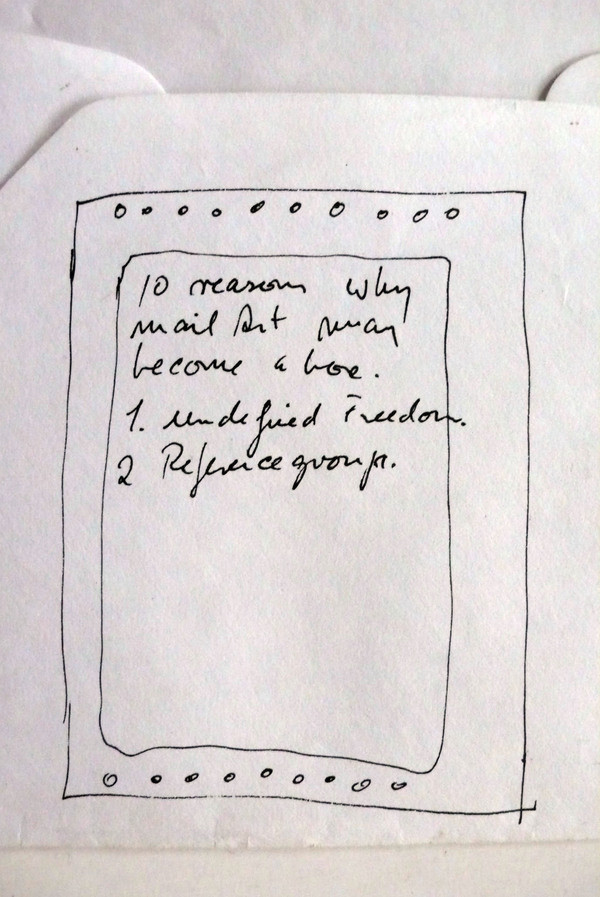 10 reasons why
mail Art may
become a
1. undefined Freedom.
2 Reference group.